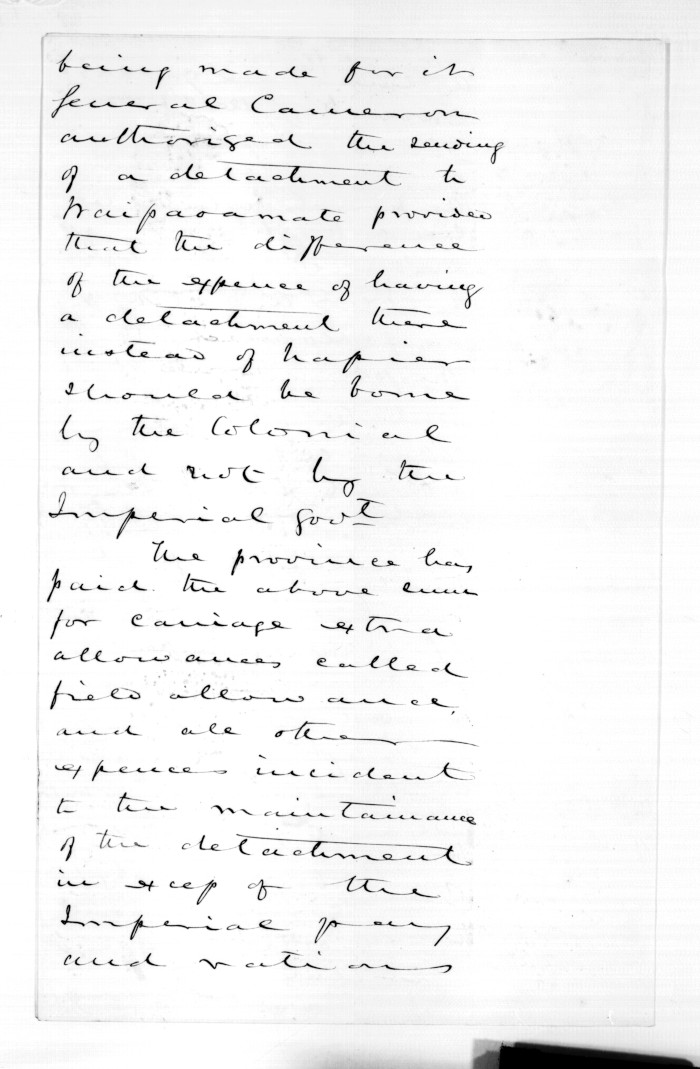 being made for it
General Cameron
authorised the sending
of a detachment to
Waipaoamate provided
that the difference
of the expence of having
a detachment there
instead of Napier
should be borne
by the Colonial
and not by the
Imperial Govt
The province has
paid the above sum
for carriage extra
allowances called
field allowance,
and all other
expences incident
to the maintainance
of the detachment
in excep of the
Imperial pay
and rations